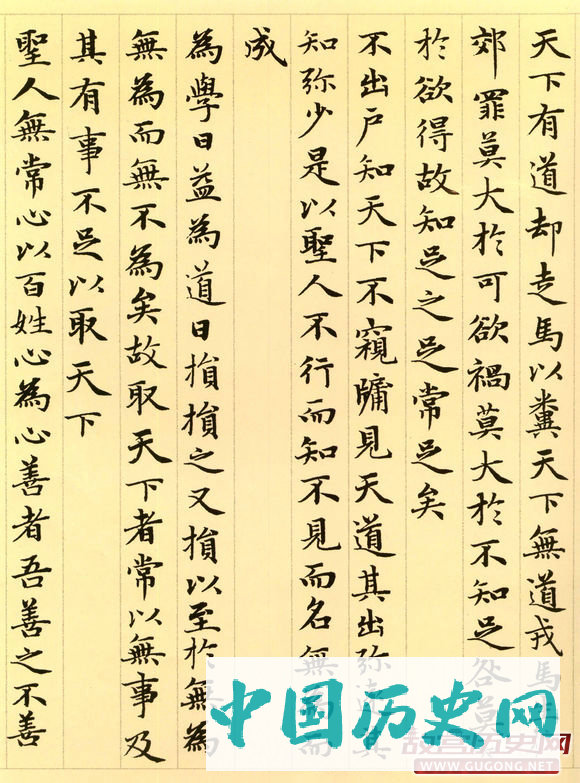 天下有道却走馬以糞天下無道戎馬
郊罪莫大於可欲禍莫大於不知足咎莫
於欲得故知足之足常足矣
不出戶知天下不窺牖見天道其出弥遠其
知弥少是以聖人不行而知不見而名無為而
成
為學日益為道日損損之又損以至於無為
無為而無不為矣故取天下者常以無事及
其有事不足以取天下
聖人無常心以百姓心為心善者吾善之不善
中国历史网
WWW.GUGONG.NET